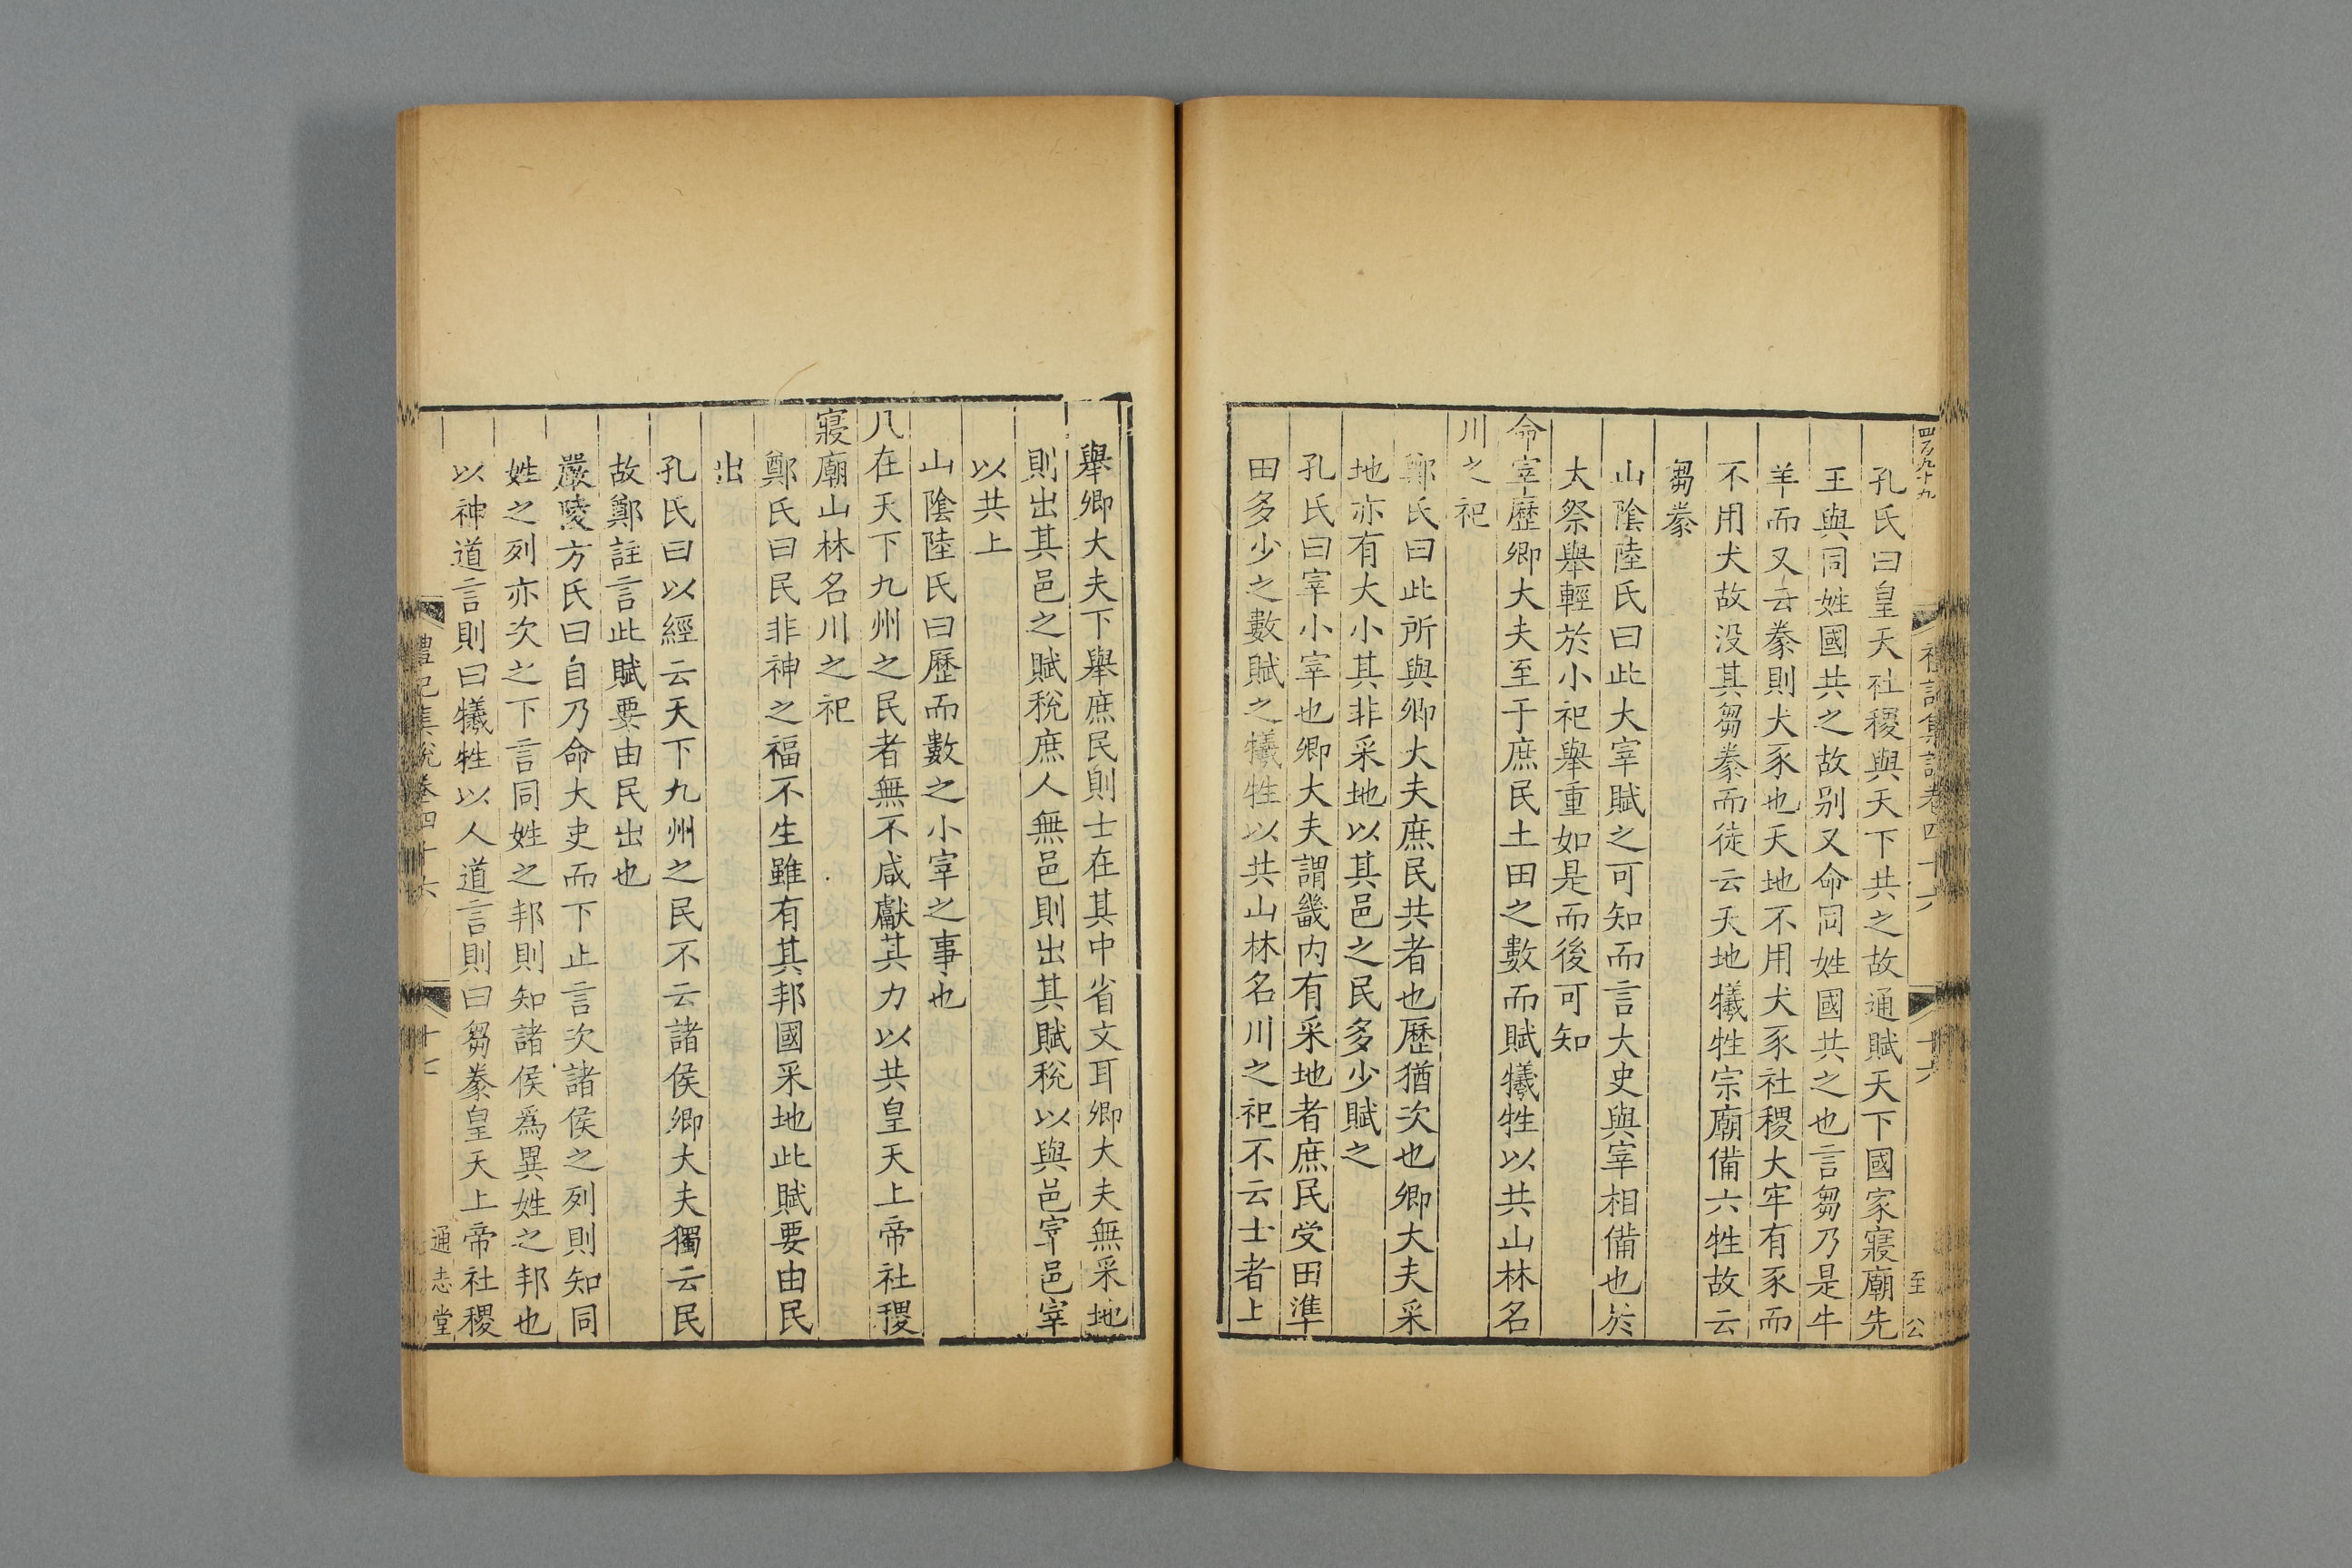 四百九十九
禮記集說卷四十六
十六
至公
孔氏曰皇天社稷與天下共之故通賦天下國家寢廟先
王與同姓國共之故别又命同姓國共之也言芻乃是牛
羊而又云豢則犬豕也天地不用犬豕社稷大牢有豕而
不用犬故没其芻豢而徒云天地犧牲宗廟備六牲故云
芻豢
山隂陸氏曰此大宰賦之可知而言大史與宰相備也於
大祭舉輕於小祀舉重如是而後可知
命宰歷卿大夫至于庶民土田之數而賦犧牲以共山林名
川之祀
鄭氏曰此所與卿大夫庶民共者也歷猶次也卿大夫采
地亦有大小其非采地以其邑之民多少賦之
孔氏曰宰小宰也卿大夫謂畿内有采地者庶民受田準
田多少之數賦之犧牲以共山林名川之祀不云士者上
舉卿大夫下舉庶民則士在其中省文耳卿大夫無采地
則出其邑之賦稅庶人無邑則出其賦稅以與邑宰邑宰
以共上
山隂陸氏曰歷而數之小宰之事也
凡在天下九州之民者無不咸獻其力以共皇天上帝社稷
寢廟山林名川之祀
鄭氏曰民非神之福不生雖有其邦國采地此賦要由民
出
孔氏曰以經云天下九州之民不云諸侯卿大夫獨云民
故鄭註言此賦要由民出也
嚴陵方氏曰自乃命大史而下止言次諸侯之列則知同
姓之列亦次之下言同姓之邦則知諸侯爲異姓之邦也
以神道言則曰犧牲以人道言則曰芻豢皇天上帝社稷
禮記集說卷四十六
十七
通志堂